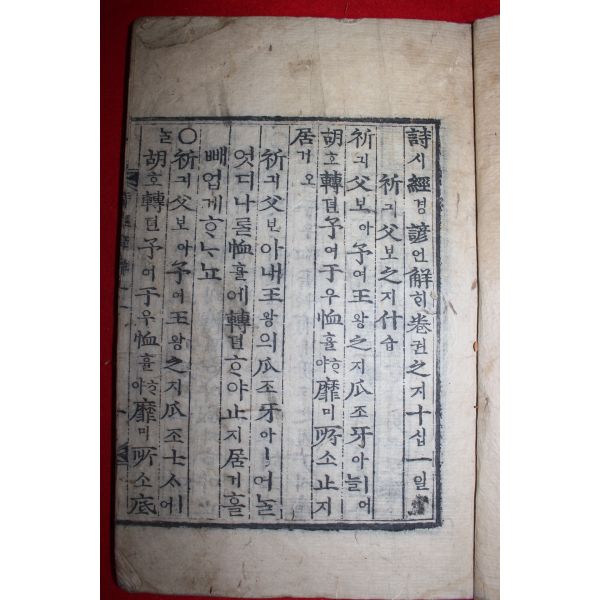 詩시經경諺언解ᄒᆡ卷권之지十십一일
祈긔父보之지什습
祈긔父보아予여王왕之지爪조牙아ㅣ어늘
胡호轉뎐予여于우恤휼ᄒᆞ야靡미所소止지
居거오
祈긔父보아내王왕의爪조牙아ㅣ어ᄂᆞᆯ
엇디나ᄅᆞᆯ恤휼에轉뎐ᄒᆞ야止지居거ᄒᆞᆯ
빼업게ᄒᆞᄂᆞ뇨
○祈긔父보아予여王왕之지爪조士ᄉᆞㅣ어
ᄂᆞᆯ胡호轉뎐予여于우恤휼ᄒᆞ야靡미所소底